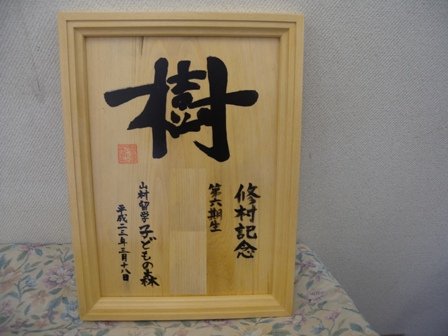 樹
修村記念
第六期生
山村留学 子どもの森
平成二三年三月十八日